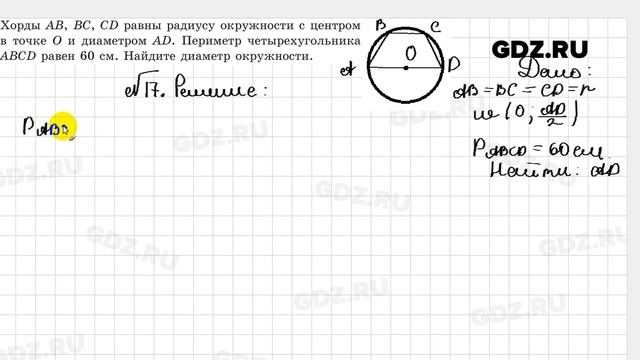 Хорды AB, BC, CD равны радиусу окружности с центром
в точке O и диаметром AD. Периметр четырехугольника
ABCD равен 60 см. Найдите диаметр окружности.
B C
O
A D
GDZ.RU
Дано:
AB = BC = CD = r
w (O; AD/2)
P ABCD = 60 см
Найти: AD
№17. Решение:
P ABC
GDZ.RU
GDZ.RU
GDZ.RU
GDZ.RU
GDZ.RU
GDZ.RU